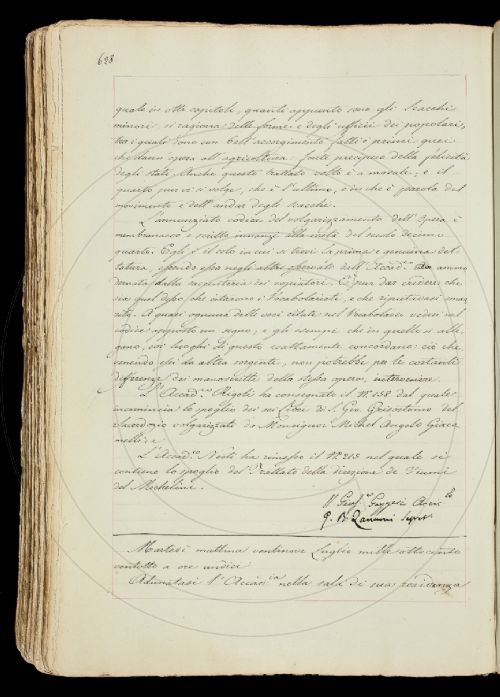 628
quale in otto capitoli, quanti appunto sono gli Scacchi
minori si ragiona delle forme e degli ufficii dei popolari,
tra i quali sono con bell' accorgimento fatti primi quei
che danno opera all' agricoltura fonte precipuo della felicità
degli stati. Anche questo trattato volto è a morale; e il
quarto poi vi si volge, che è l'ultimo, ed in che è parola del
movimento e dell' andar degli scacchi.
L'annunziato codice del volgarizzamento dell' Opera è
membranaceo e scritto innanzi alla metà del secolo decimo
quarto. Egli è il solo in cui si trovi la prima e genuina det-
tatura, essendo essa negli altri osservati dell' Accad.co ammo
dernata dalla
sia quel desso, che citarono i Vocabolaristi, e che reputavasi smar
rito. A quasi ognuna delle voci citate nel Vocabolario vedesi nel
codice apposto un segno, e gli esempi che in quello si alle-
gano, coi luoghi di questo esattamente concordano: ciò che
venendo essi da altra sorgente, non potrebbe per le costanti
differenze dei manoscritti della stessa opera, intervenire.
L'Accad.co Rigoli ha consegnato il N.o 158 dal quale
incomincia lo spoglio dei sei libri di S. Gio. Grisostomo del
Sacerdozio volgarizzati da Monsignor Michel Angelo Giaco
melli: e
L'Accad.co Nesti ha rimesso il N.o 213 nel quale si
contiene lo spoglio del Trattato della direzione de' Fiumi
del Michelini.
G. B. Zannoni Segret.o
Martedì mattina ventinove Luglio mille otto cento
ventotto a ore undici
Adunatasi l'Accad.ia nella sala di sua residenza